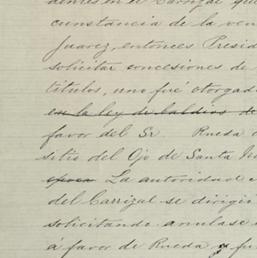 demás en el Carrizal que
cunstancia de la ven
Juarez, entonces Presid
solicitar concesiones de
títulos, uno fué otorgad
en la ley de baldíos de
favor del Sr. Rueda
sitio del Ojo de Santa
época La autoridad
del Carrizal se dirigió
solicitando anulase
á favor de Rueda, y fu